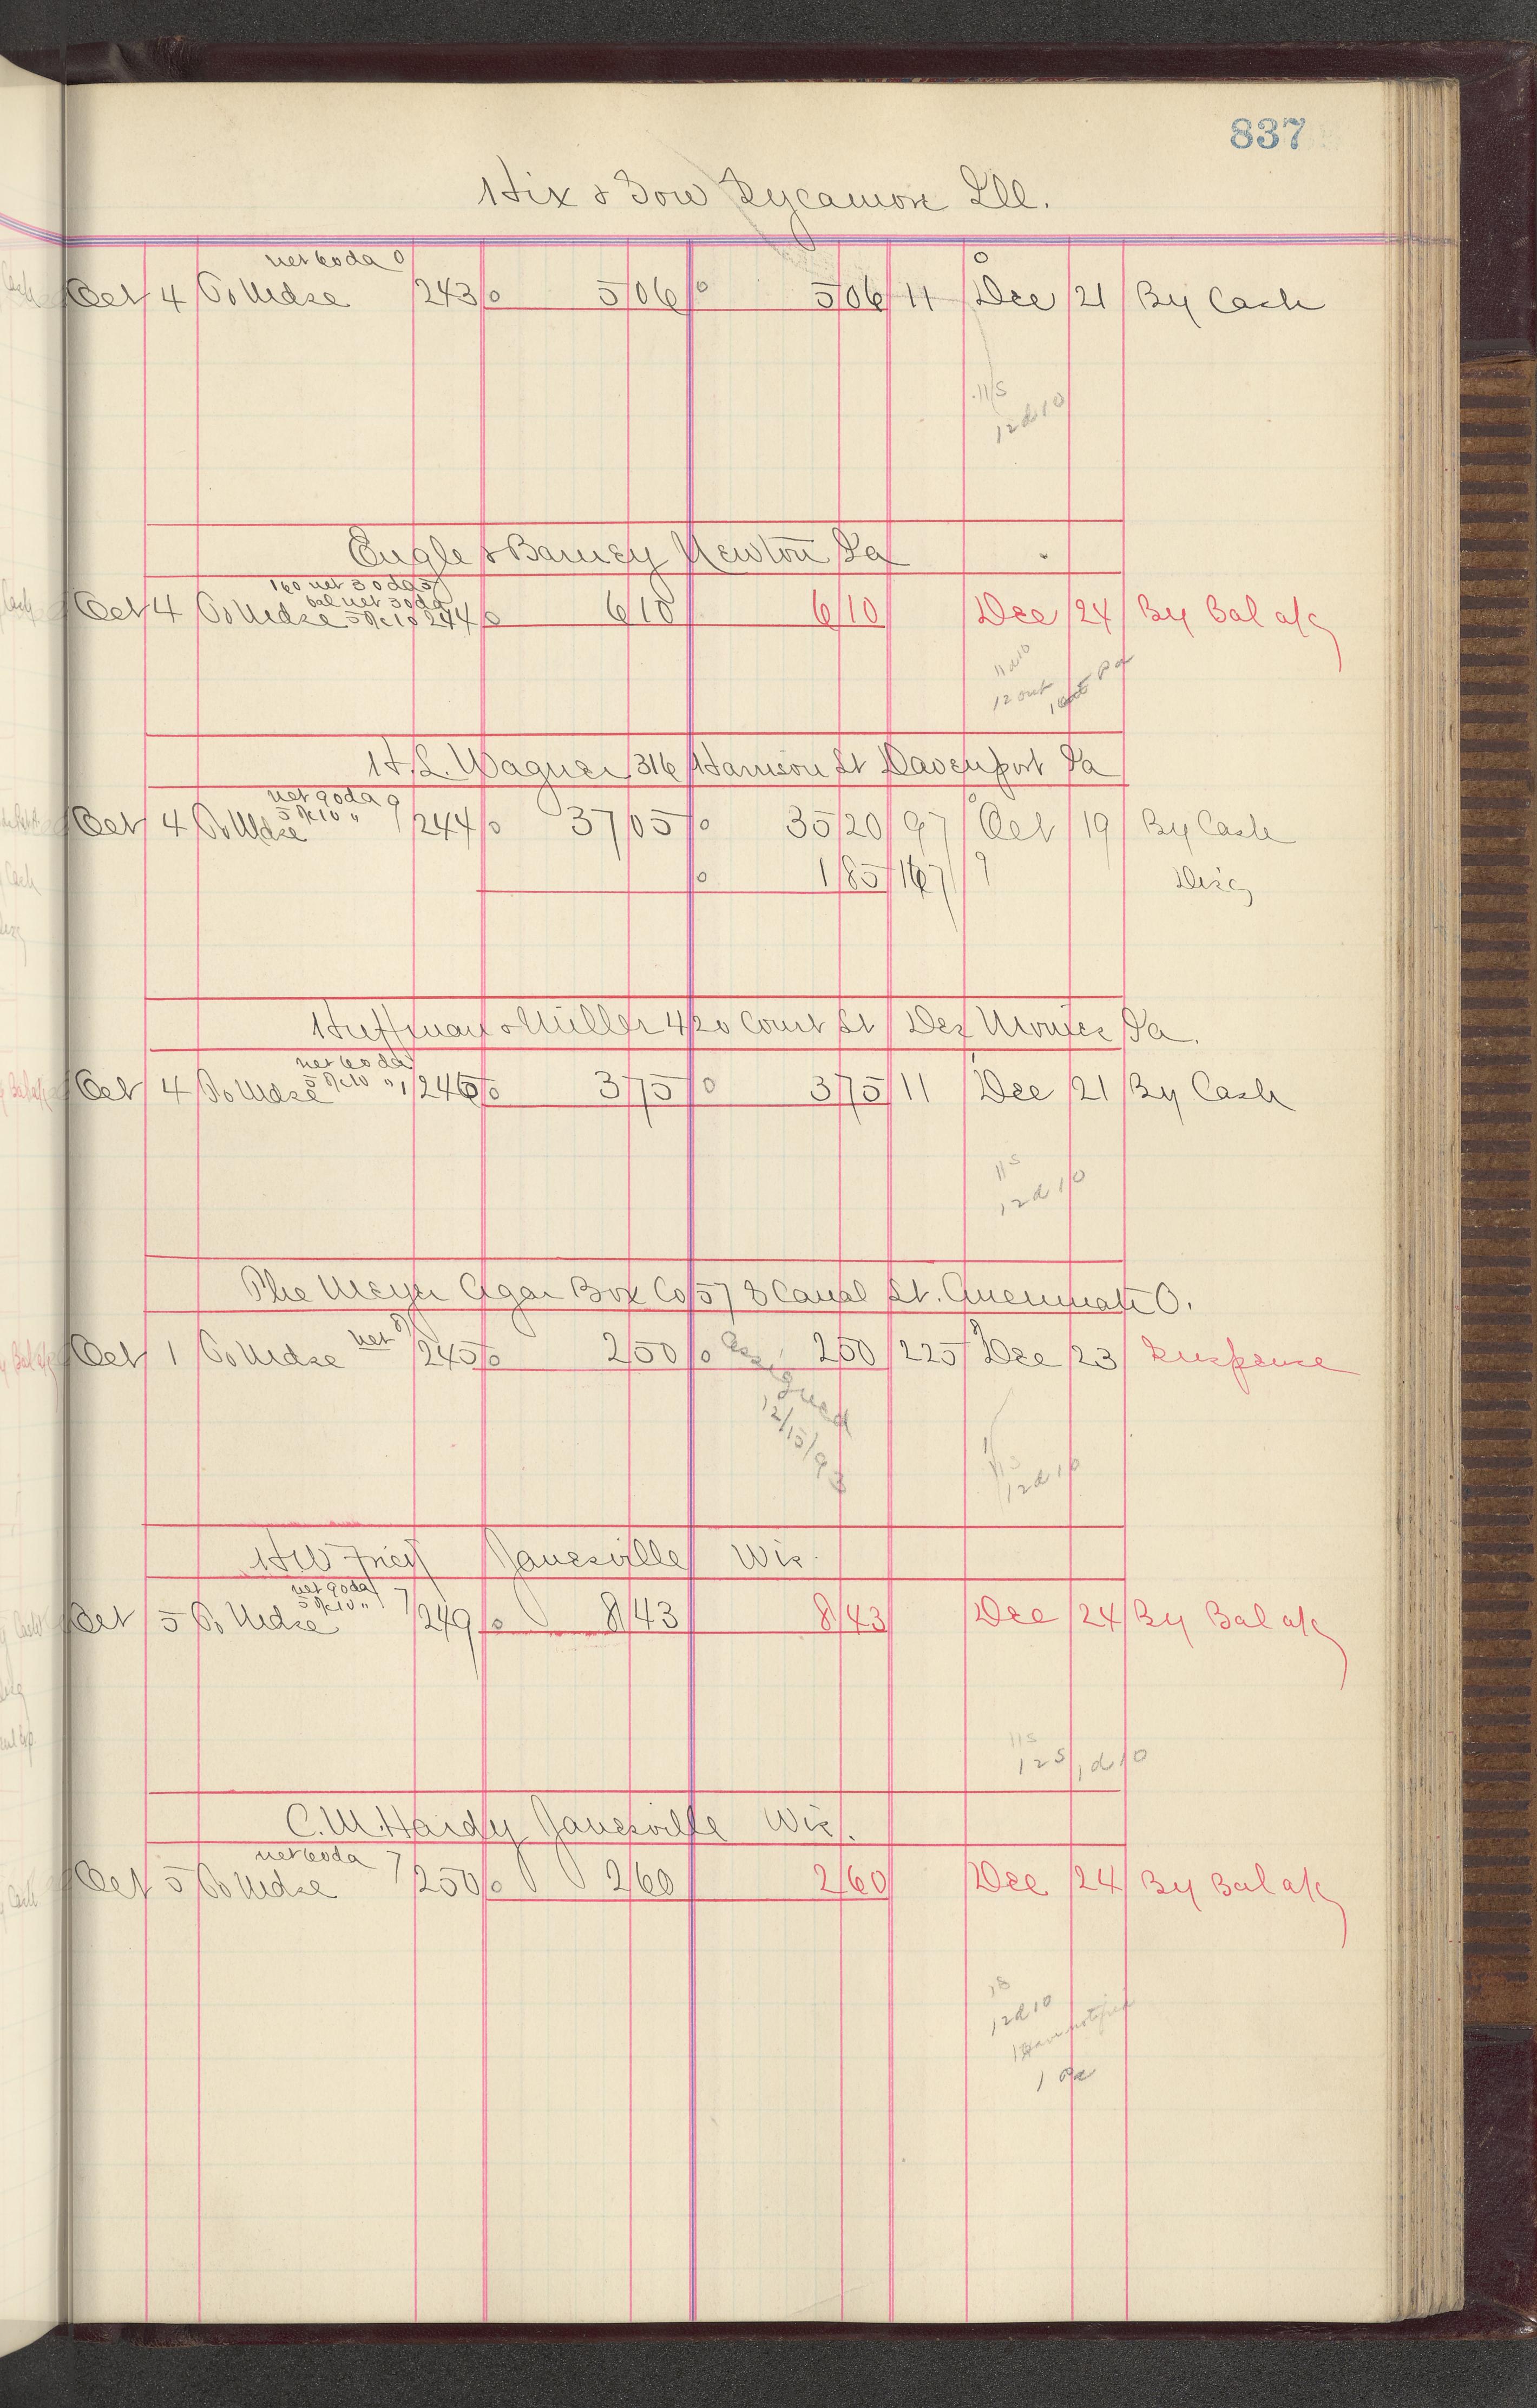 837
Hix & Bow Sycamore Ill.
net 60 da 0
Oct 4 To Mdse 243 0 5 06 0 5 06 11 Dec 21 By Cash
11 S
12 d 10
Engle & Barney Newton Ia
160 net 30 da 5
bal net 30 da
Oct 4 To Mdse 5%10 244 0 6 10 6 10 Dec 24 By Bal a/c
11 d 10
12 out
H.L. Wagner 316 Harrison St Davenport Ia
net 90 da 9
5%10 "
Oct 4 To Mdse 244 0 37 05 0 35 20 97 Oct 19 By Cash
0 1 85 167 9 Disc
Huffman & Miller 420 Court St Des Moines Ia.
net 60 da
5%10 " 1
Oct 4 To Mdse 246 0 3 75 0 3 75 11 Dec 21 By Cash
11 S
12 d 10
The Meyer Cigar Box Co 578 Canal St. Cincinnati O.
net 8
Oct 1 To Mdse 245 0 2 50 0 2 50 225 Dec 23 Suspense
Assigned
12/15/93
11 S
12 d 10
H W Frey Janesville Wis.
net 90 da 7
5%10 "
Oct 5 To Mdse 249 0 8 43 8 43 Dec 24 By Bal a/c
11 S
12 S 1 d 10
C.M. Hardy Janesville Wis.
net 60 da 7
Oct 5 To Mdse 250 0 2 60 2 60 Dec 24 By Bal a/c
12 d 10